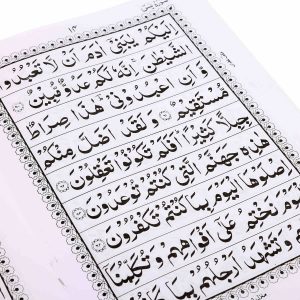 اِلَيْكُمْ يٰبَنِيْٓ اٰدَمَ اَنْ لَّا تَعْبُدُوا
الشَّيْطٰنَ ۚ اِنَّهٗ لَكُمْ عَدُوٌّ مُّبِيْنٌ
وَّاَنِ اعْبُدُوْنِيْ ؔ هٰذَا صِرَاطٌ
مُّسْتَقِيْمٌ وَلَقَدْ اَضَلَّ مِنْكُمْ
جِبِلًّا كَثِيْرًا ؕ اَفَلَمْ تَكُوْنُوْا تَعْقِلُوْنَ
هٰذِهٖ جَهَنَّمُ الَّتِيْ كُنْتُمْ تُوْعَدُوْنَ
اِصْلَوْهَا الْيَوْمَ بِمَا كُنْتُمْ تَكْفُرُوْنَ
اَلْيَوْمَ نَخْتِمُ عَلٰٓى اَفْوَاهِهِمْ وَتُكَلِّمُنَآ
وَتَشْهَدُ اَرْجُلُهُمْ بِمَا